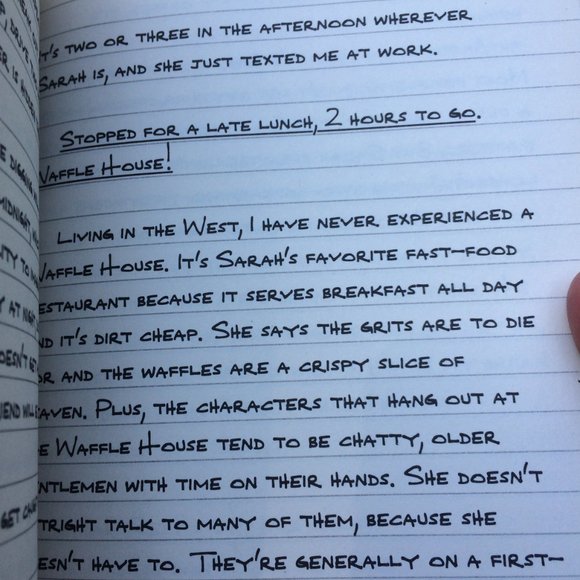 T'S TWO OR THREE IN THE AFTERNOON WHEREVER
SARAH IS, AND SHE JUST TEXTED ME AT WORK.
STOPPED FOR A LATE LUNCH, 2 HOURS TO GO.
WAFFLE HOUSE!
LIVING IN THE WEST, I HAVE NEVER EXPERIENCED A
WAFFLE HOUSE. IT'S SARAH'S FAVORITE FAST-FOOD
ESTAURANT BECAUSE IT SERVES BREAKFAST ALL DAY
ND IT'S DIRT CHEAP. SHE SAYS THE GRITS ARE TO DIE
OR AND THE WAFFLES ARE A CRISPY SLICE OF
EAVEN. PLUS, THE CHARACTERS THAT HANG OUT AT
E WAFFLE HOUSE TEND TO BE CHATTY, OLDER
NTLEMEN WITH TIME ON THEIR HANDS. SHE DOESN'T
TRIGHT TALK TO MANY OF THEM, BECAUSE SHE
ESN'T HAVE TO. THEY'RE GENERALLY ON A FIRST-